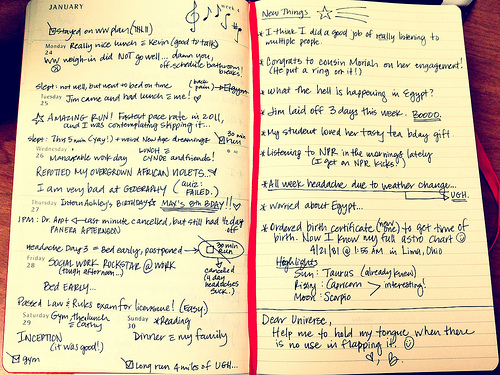 JANUARY
week 4
stayed on WW plan (
Monday Really nice lunch c̄ Kevin (good to talk)
24
WW weigh-in did NOT go well... damn you,
off-schedule bathroom breaks!
slept: not well, but went to bed on time
(back pain) → gym
Tuesday Jim came and had lunch c̄ me!
25
☆ AMAZING RUN! Fastest pace rate in 2011,
and I was contemplating skipping it...
slept: This 5 min (yay!) + weird New Age dreamings
30 min run
Wednesday
26 remarkable work day
LUNCH c̄ CYNDE and friends!
REPOTTED MY OVERGROWN AFRICAN VIOLETS
I am very bad at GEOGRAPHY (quiz: FAILED.)
Thursday Intern Ashley's BIRTHDAY ☆ MAY'S 8th BDAY!!
27
1PM: Dr. Appt ← last minute cancelled, but still had ½ day off
PANERA AFTERNOON
Headache Day 3 = Bed early, postponed →
30 min run
cancelled
(4 day headaches SUCK.)
Friday SOCIAL WORK ROCKSTAR @ WORK
28
(tough afternoon...)
BED EARLY...
Passed Law & Rules exam for licensure! (Easy)
Saturday Gym the lunch c̄ Cathy
29
Sunday * Reading
30
Dinner c̄ my family
INCEPTION
(it was good!)
gym
Long run 4 miles of UGH...
New Things ☆
* I think I did a good job of really listening to
multiple people.
* Congrats to cousin Moriah on her engagement!
(He put a ring on it!)
* What the hell is happening in Egypt?
* Jim laid off 3 days this week. BOOOO.
* My student loved her tasty tea bday gift
* Listening to NPR in the mornings lately
(I get on NPR kicks!)
* All week headache due to weather change...
→ UGH.
* Worried about Egypt...
* Ordered birth certificate (new one) to get time of
birth. Now I know my full astro chart ☺
4/21/81 @ 1:55 AM in Lima, Ohio
Highlights
Sun: Taurus (already knew)
Rising: Capricorn > interesting!
Moon: Scorpio
Dear Universe,
Help me to hold my tongue when there
is no use in flapping it. ☺
♥, B.